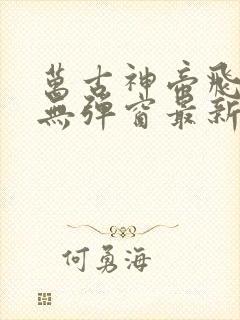 萬古神帝飛
無彈窗最新
何勇海